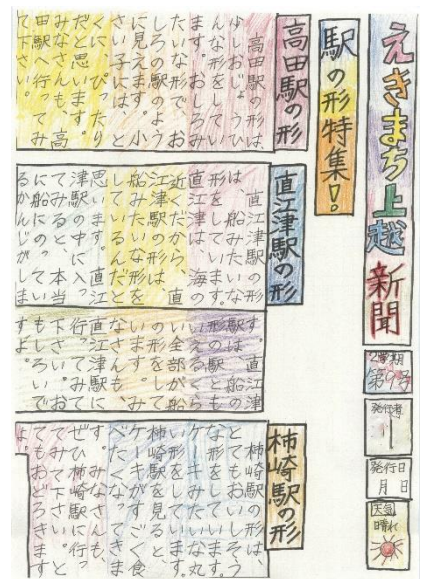 えきまち上越新聞
2学期
第9号
発行者
発行日
月 日
天気
晴れ
駅の形特集!。
高田駅の形
高田駅の形は、
ゆしおじょうひ
んな形をしてい
ます。おしろみ
たいな形で、お
しろの駅のよう
に見えます。小
さい子には、と
くに、ぴったり
だと思います。
みなさんも、高
田駅へ行ってみ
て下さい。
直江津駅の形
直江津駅の形
は、船みたいな
形をしています。
直江津は、海の
近くだから、直
江津駅の形は、
船みたいな形を
しているんだと
思います。直江
津駅の中に入っ
てみると、本当
に船にのってい
るかんじがしま
す。直江津
駅は、船の
形の駅とも
いえるくら
い全部が船
の形をして
います。み
なさんも、
直江津駅に
行ってみて
下さい。お
もしろいで
すよ。
柿崎駅の形
柿崎駅の形は、
とてもおいしそう
なケーキみたいな丸
い形をしています。
柿崎駅を見ると、
ケーキがすごく食
べたくなってきま
す。みなさんも、
ぜひ柿崎駅に行っ
てみて下さい。と
てもおどろきます
よ。